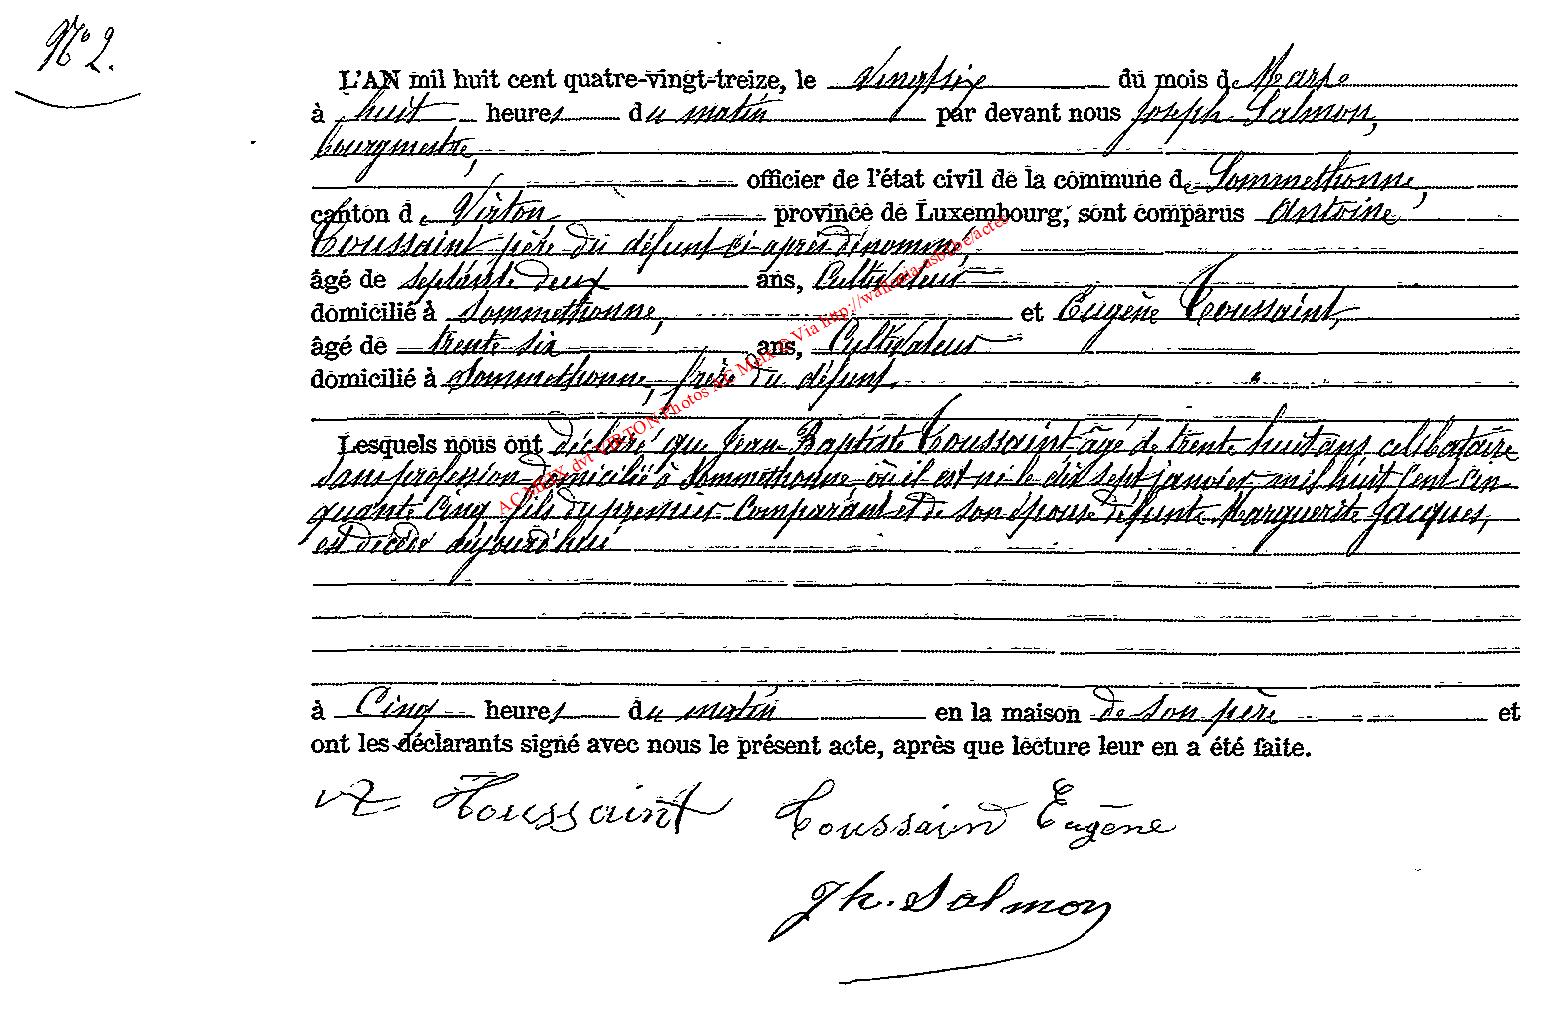 N° 2.
L'AN mil huit cent quatre-vingt-treize, le vingtsix du mois de Mars
à huit heures du matin par devant nous Joseph Salmon,
bourgmestre,
officier de l'état civil de la commune de Sommethonne,
canton de Virton province de Luxembourg, sont comparus Antoine
Toussaint père du défunt ci-après dénommé,
âgé de septante deux ans, Cultivateur
domicilié à Sommethonne, et Eugène Toussaint,
âgé de trente six ans, Cultivateur
domicilié à Sommethonne, frère du défunt.
Lesquels nous ont déclaré que Jean-Baptiste Toussaint âgé de trente huit ans célibataire
sans profession domicilié à Sommethonne, où il est né le dix sept janvier mil huit cent cin-
quante cinq fils du premier comparant et de son épouse défunte Marguerite Jacques,
est décédé aujourd'hui
à Cinq heures du matin en la maison de son père et
ont les déclarants signé avec nous le présent acte, après que lecture leur en a été faite.
Toussaint Toussaind Eugène
Jh. Salmon
AC MEIX dvt VIRTON Photos AC Meix © Via http://wallonia-asbl.be/actes